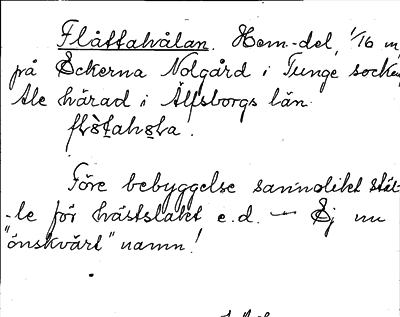 Flåttahålan. Hem.-del, 1/16 m
på Åckerna Nolgård i Tunge socken,
Ale härad i Älfsborgs län.
Före bebyggelse sannolikt stäl-
-le för hästslakt e.d. — Ej nu
"önskvärt" namn!